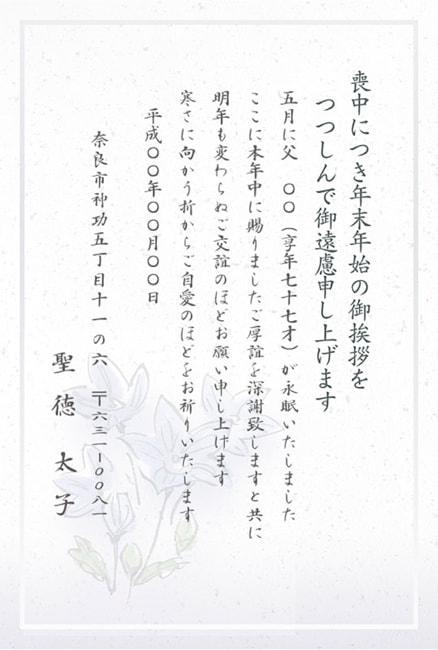 喪中につき年末年始の御挨拶を
つつしんで御遠慮申し上げます
五月に父 〇〇（享年七十七才）が永眠いたしました
ここに本年中に賜りましたご厚誼を深謝致しますと共に
明年も変わらぬご交誼のほどお願い申し上げます
寒さに向かう折からご自愛のほどをお祈りいたします
平成〇〇年〇〇月〇〇日
奈良市神功五丁目十一の六 〒六三一ー〇〇八一
聖徳 太子